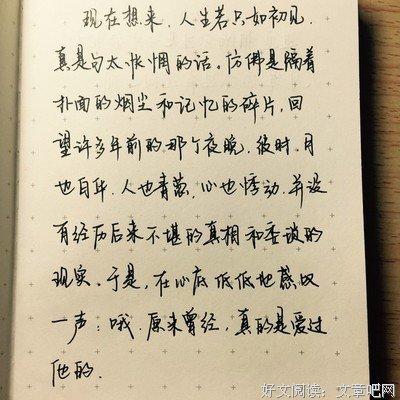 现在想来，人生若只如初见，
真是句太怅惘的话。仿佛是隔着
扑面的烟尘和记忆的碎片，回
望许多年前的那个夜晚，彼时，月
也白华，人也青葱，心也悸动，并没
有经历后来不堪的真相和委琐的
现实。于是，在心底低低地感叹
一声：哦，原来曾经，真的是爱过
他的.
好文阅读：文章吧网